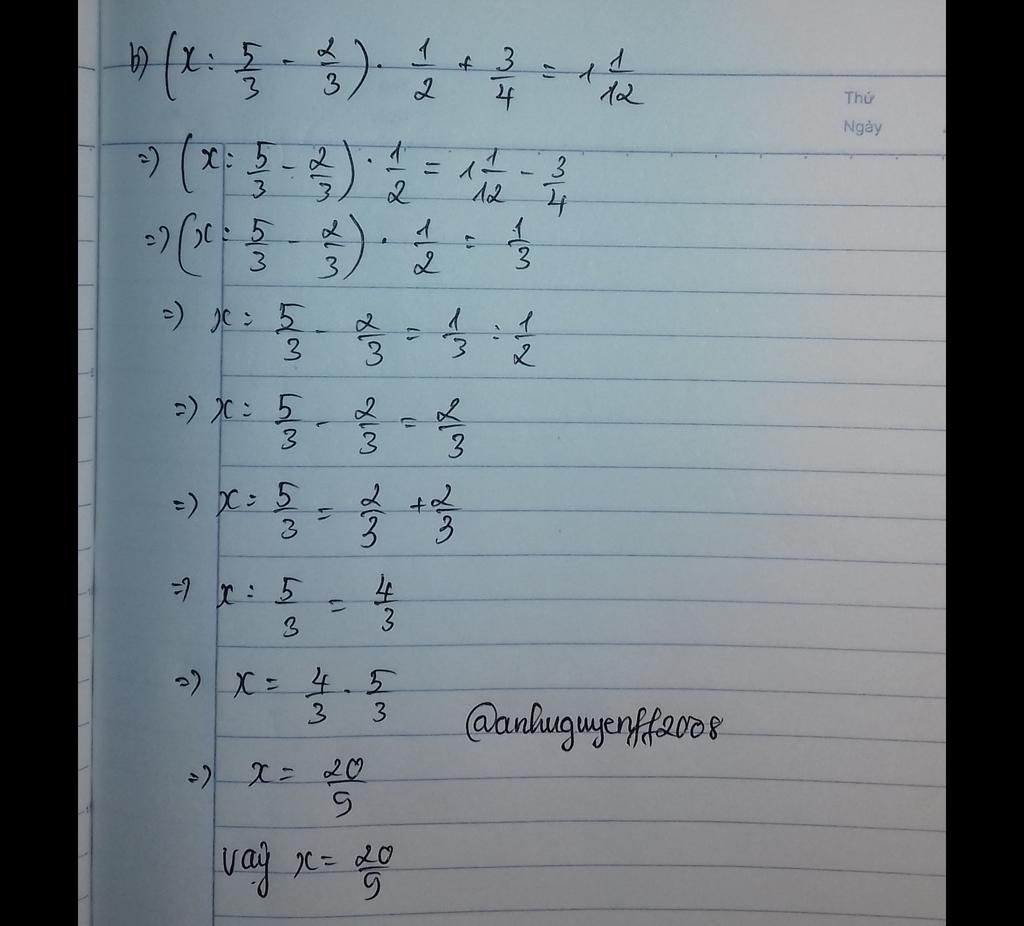 b) (x : 5/3 - 2/3) . 1/2 + 3/4 = 1 1/12
Thứ
Ngày
=) (x : 5/3 - 2/3) . 1/2 = 1 1/12 - 3/4
=) (x : 5/3 - 2/3) . 1/2 = 1/3
=) x : 5/3 - 2/3 = 1/3 : 1/2
=) x : 5/3 - 2/3 = 2/3
=) x : 5/3 = 2/3 + 2/3
=) x : 5/3 = 4/3
=) x = 4/3 . 5/3
@anhnguyenff2008
=) x = 20/9
Vậy x = 20/9